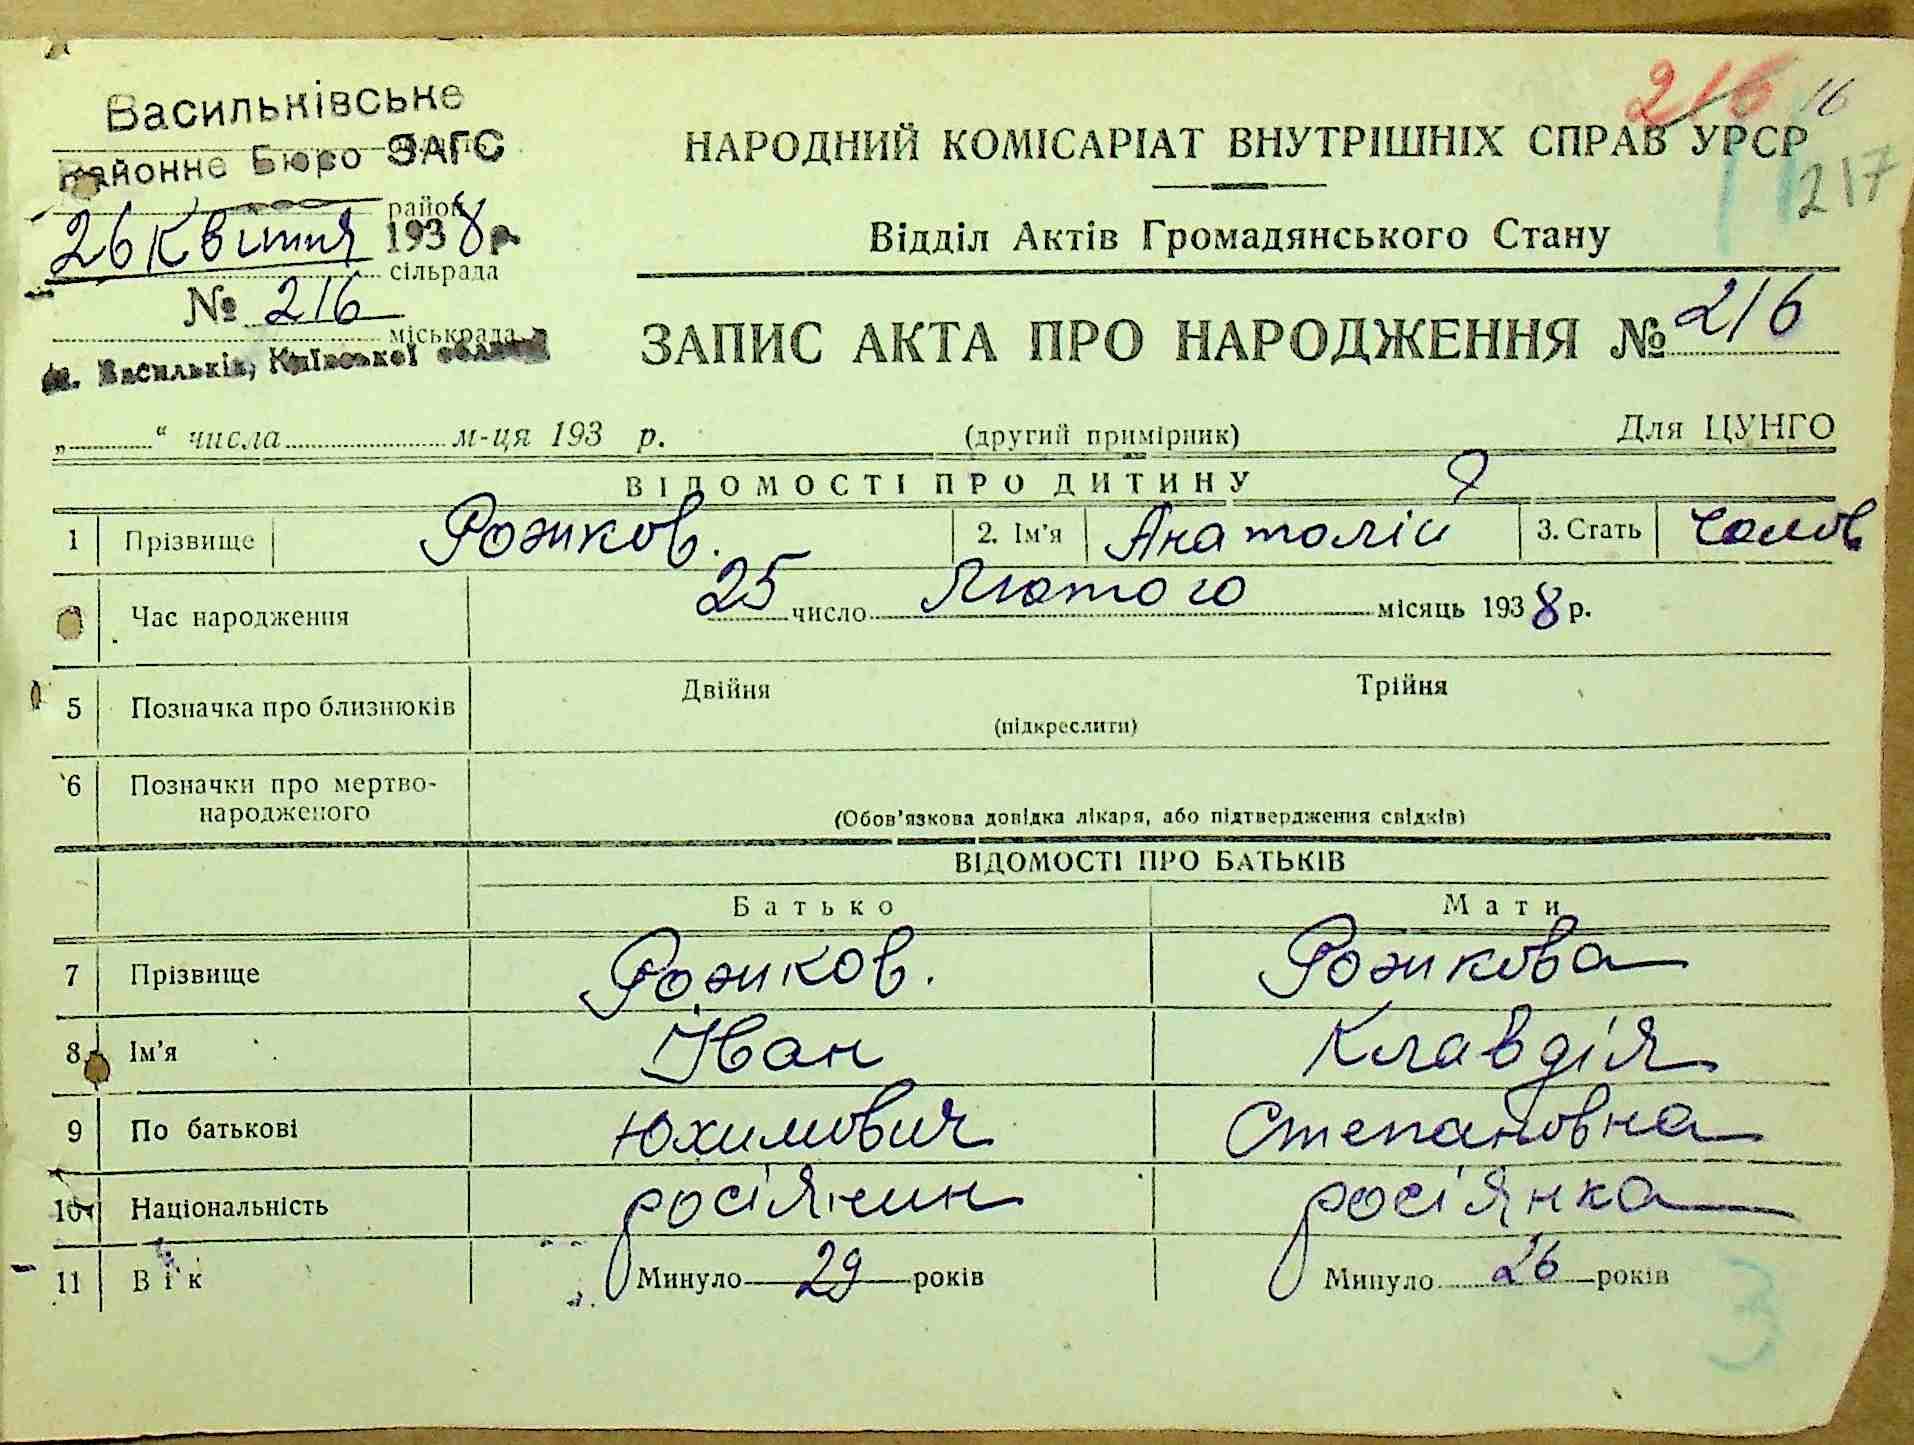 Васильківське
Районне Бюро ЗАГС
район
26 Квітня 1938 р.
сільрада
№ 216
міськрада
м. Васильків, Київської області
216 16
217
НАРОДНИЙ КОМІСАРІАТ ВНУТРІШНІХ СПРАВ УРСР
Відділ Актів Громадянського Стану
ЗАПИС АКТА ПРО НАРОДЖЕННЯ № 216
„ “ числа м-ця 193 р. (другий примірник) Для ЦУНГО
ВІДОМОСТІ ПРО ДИТИНУ
1 Прізвище Рожков. 2. Ім’я Анатолій 3. Стать чолов
Час народження 25 число Лютого місяць 1938 р.
5 Позначка про близнюків Двійня Трійня
(підкреслити)
6 Позначки про мертво-
народженого
(Обов’язкова довідка лікаря, або підтвердження свідків)
ВІДОМОСТІ ПРО БАТЬКІВ
Батько Мати
7 Прізвище Рожков. Рожкова
8 Ім’я Іван Клавдія
9 По батькові Юхимович Степановна
10 Національність росіянин росіянка
11 Вік Минуло 29 років Минуло 26 років
3